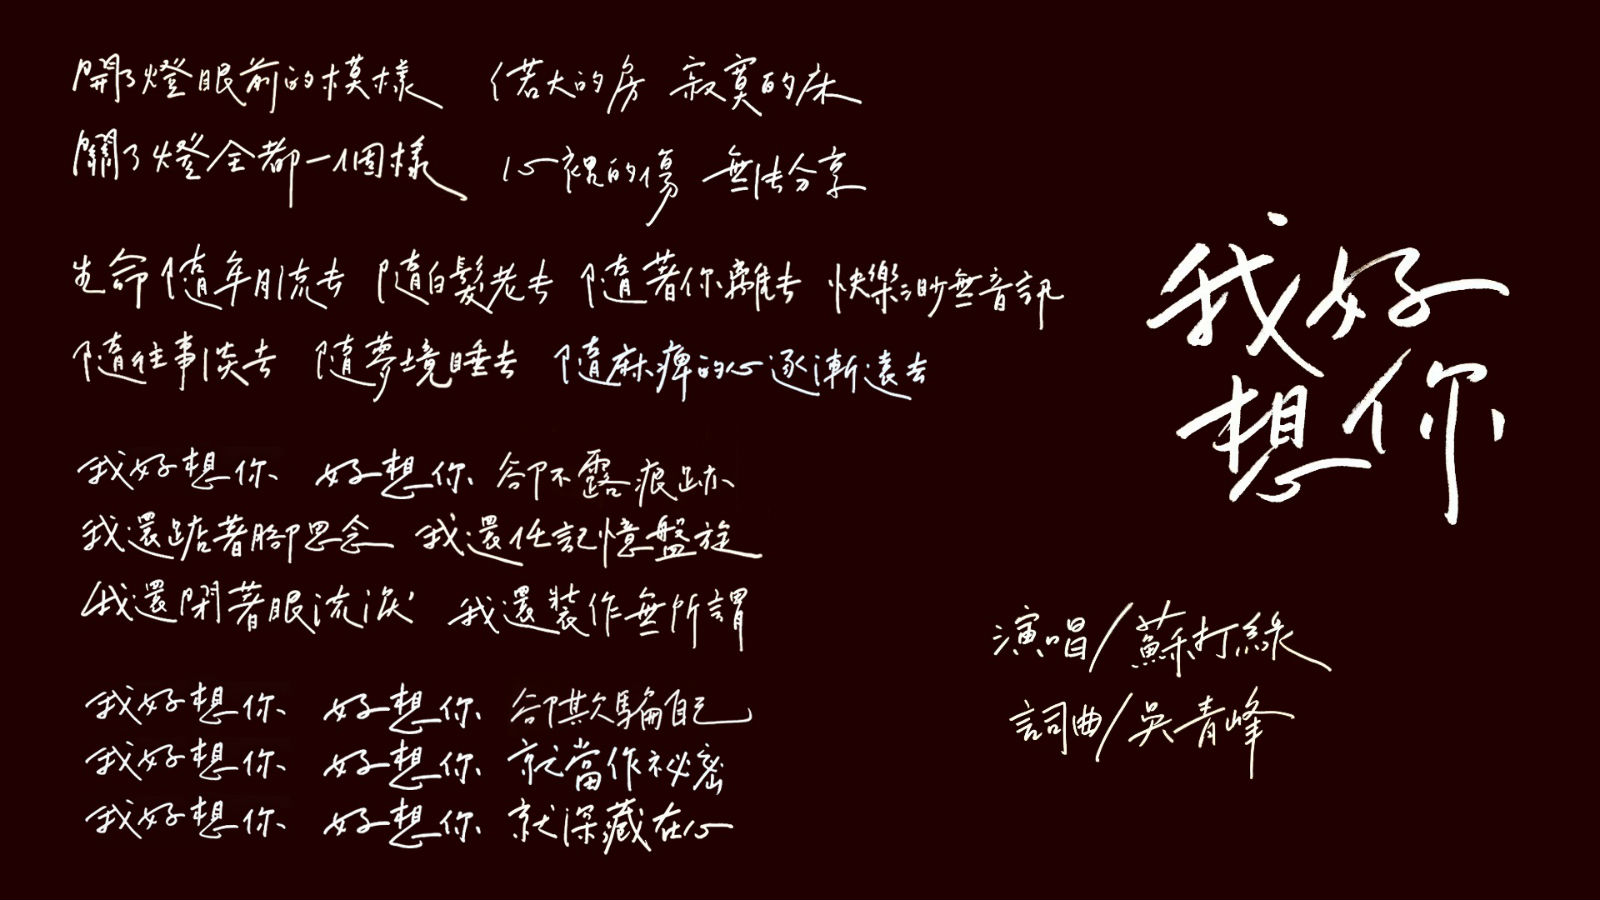 開了燈眼前的模樣 偌大的房 寂寞的床
關了燈全都一個樣 心裡的傷 無法分享
生命隨年月流去 隨白髮老去 隨著你離去 快樂渺無音訊
隨往事淡去 隨夢境睡去 隨麻痺的心逐漸遠去
我好想你 好想你 卻不露痕跡
我還踮著腳思念 我還任記憶盤旋
我還閉著眼流淚 我還裝作無所謂
我好想你 好想你 卻欺騙自己
我好想你 好想你 就當作祕密
我好想你 好想你 就深藏在心
我好
想你
演唱/蘇打綠
詞曲/吳青峰